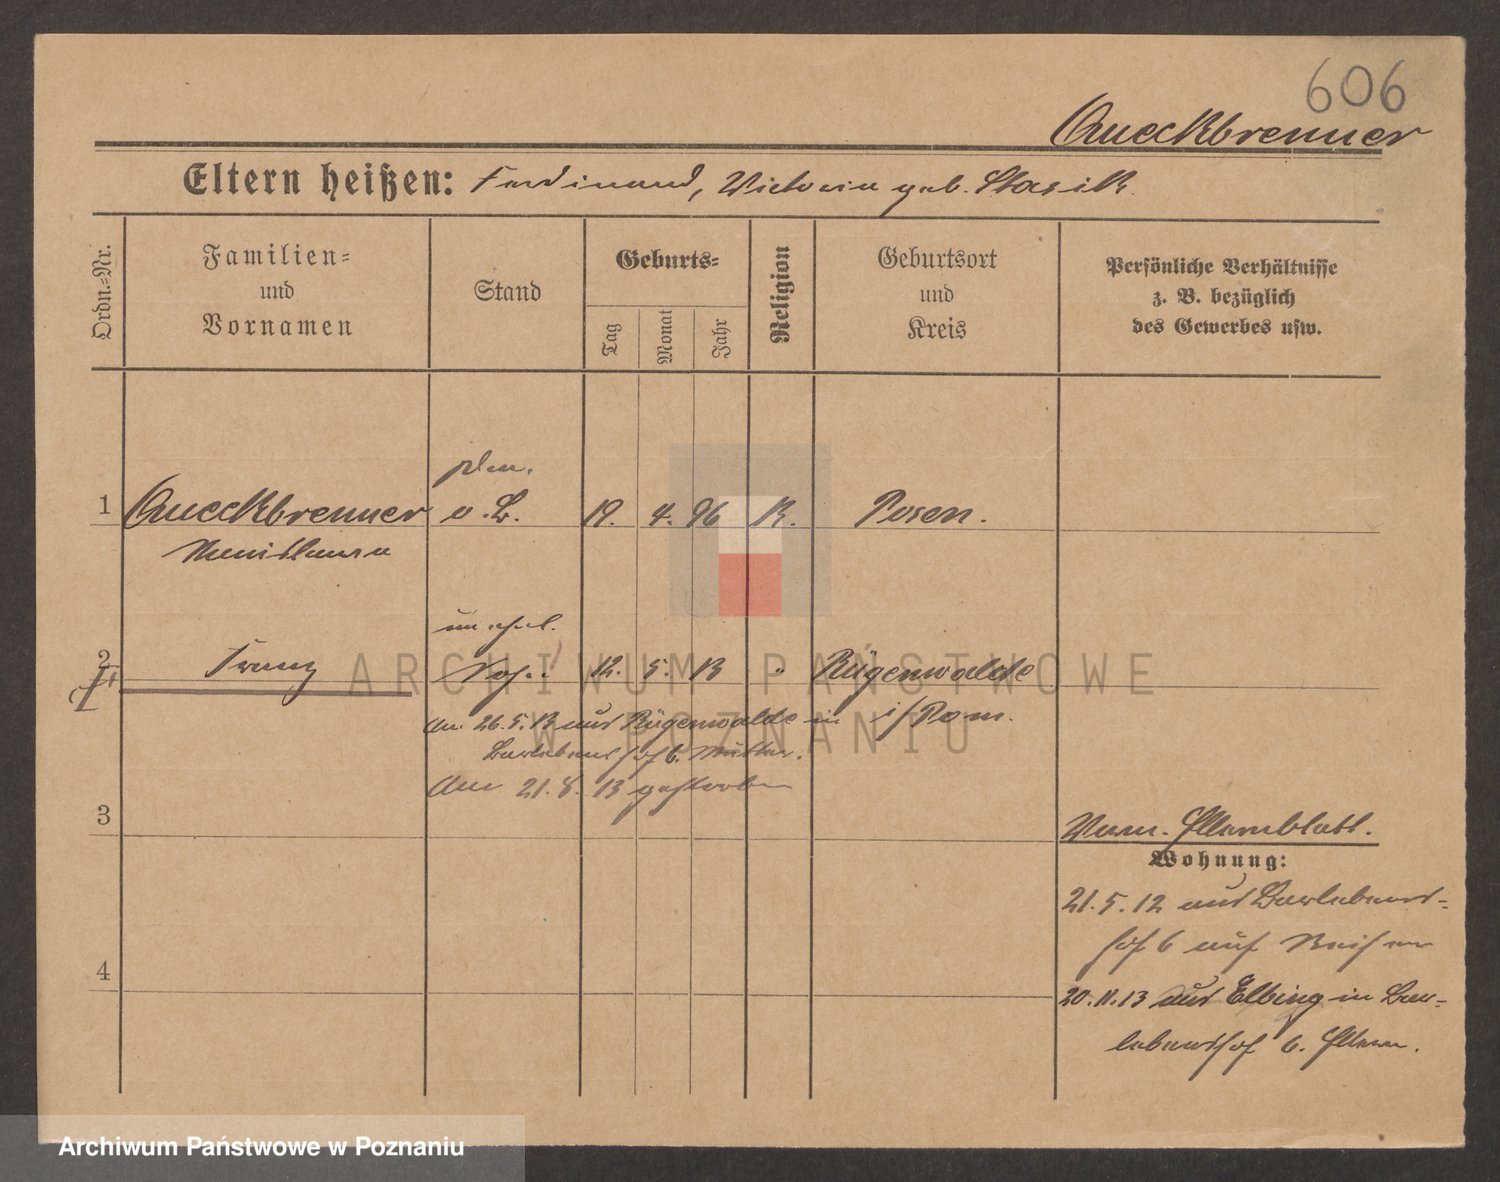 606
Queckbrenner
Eltern heißen: Ferdinand, Victoria geb. Stasik
Ordn.-Nr.
Familien-
und
Vornamen
Stand
Geburts-
Tag
Monat
Jahr
Religion
Geburtsort
und
Kreis
Persönliche Verhältnisse
z. B. bezüglich
des Gewerbes usw.
1 Queckbrenner o.B. 19. 4. 96 K. Posen.
unehel.
2 Franz Sohn 12. 5. 13 " Rügenwalde
i/Pom.
An. 26.5.13 aus Rügenwalde in
Barlebenshof 6. Mutter.
Am 21.8.13 gestorben
3
Elternblatt.
Wohnung:
21.5.12 aus Barlebens-
hof 6 auf Reisen
4
20.11.13 aus Elbing in Bar-
lebenshof 6. Eltern.
ARCHIWUM PAŃSTWOWE
W POZNANIU
Archiwum Państwowe w Poznaniu